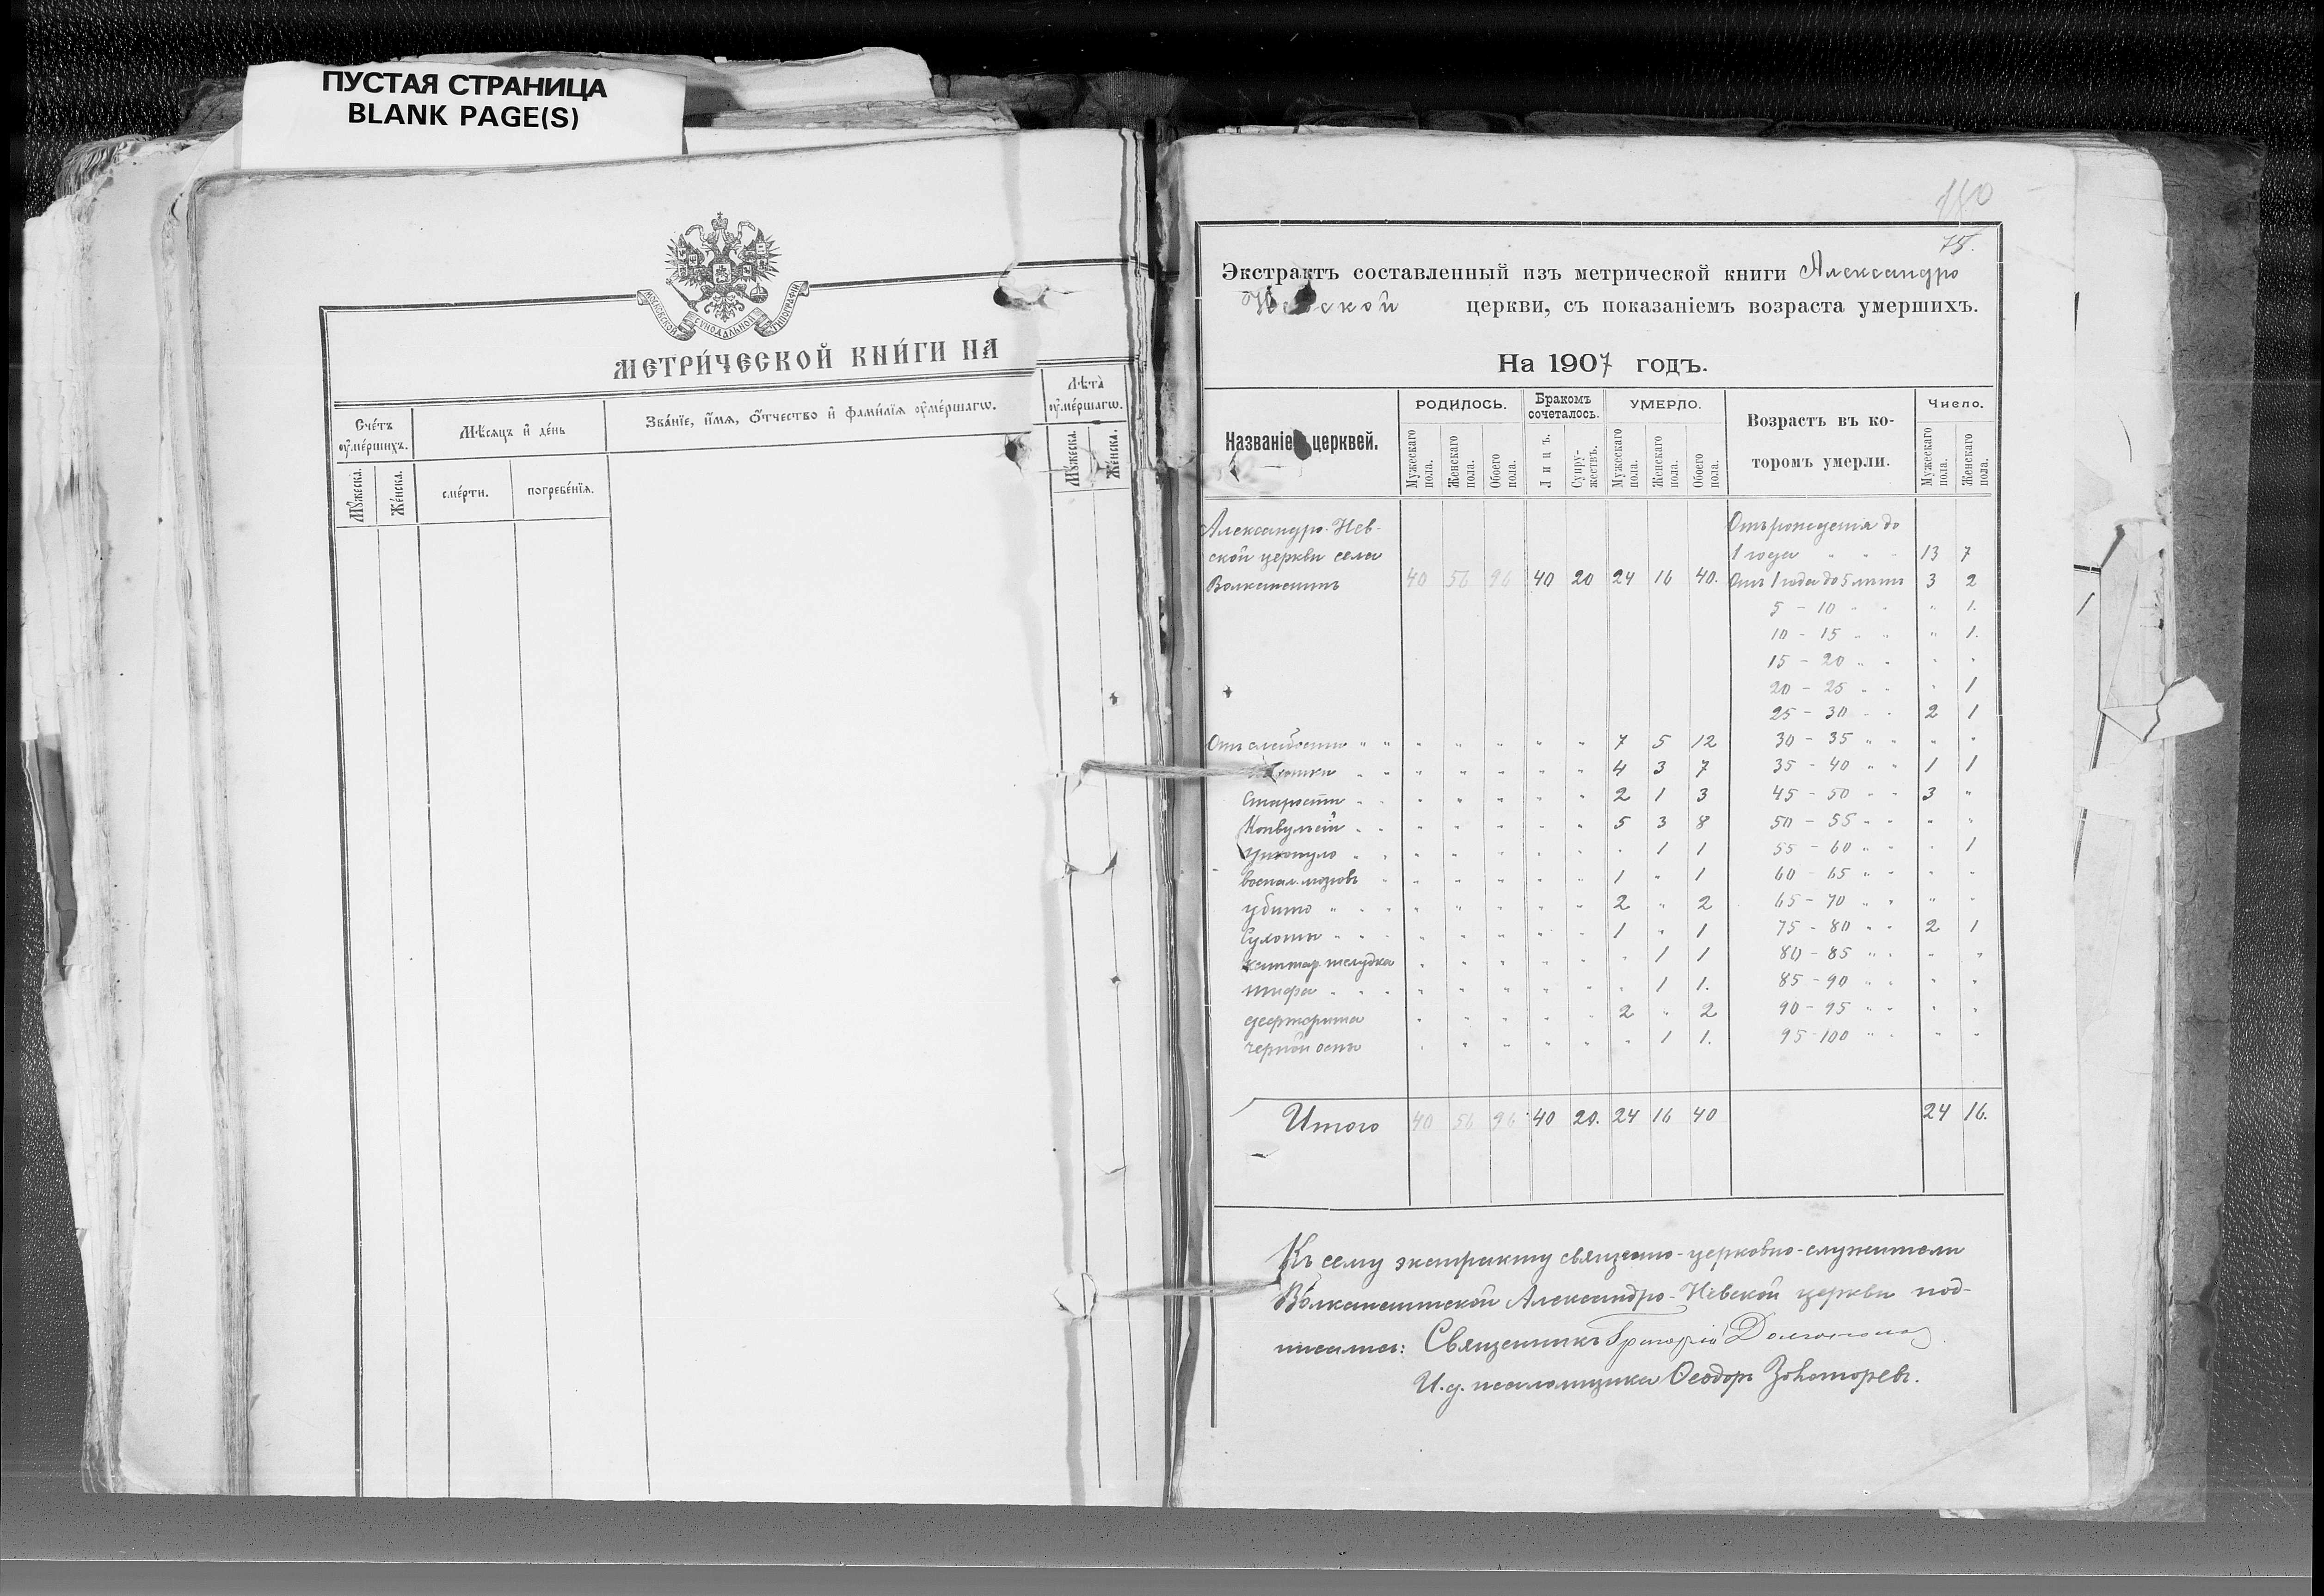 ПУСТАЯ СТРАНИЦА
BLANK PAGE(S)
МОСКОВСКОЙ СѴНОДАЛЬНОЙ ТИПОГРАФІИ
МЕТРИ́ЧЕСКОЙ КНИ́ГИ НА
Сче́тъ оумершихъ.
Мѣсяцъ и де́нь
Зва́нїе, и́мя, о́тчество и фами́лїя оуме́ршагѡ.
Лѣта̀ оуме́ршагѡ.
Мꙋжеска.
Же́нска.
сме́рти.
погребе́нїѧ.
Мꙋжеска.
Же́нска.
150
75.
Экстрактъ составленный изъ метрической книги Александро
Невской церкви, съ показаніемъ возраста умершихъ.
На 1907 годъ.
Названіе церквей.
РОДИЛОСЬ.
Бракомъ сочеталось.
УМЕРЛО.
Возрастъ въ ко-
торомъ умерли.
Число.
Мужескаго пола.
Женскаго пола.
Обоего пола.
Лицъ.
Супру-жествъ.
Мужескаго пола.
Женскаго пола.
Обоего пола.
Мужескаго пола.
Женскаго пола.
Александро-Нев- Отъ рожденія до
ской церкви села 1 года " " " 13 7
40 56 96 40 20 24 16 40. Отъ 1 года до 5 лѣтъ 3 2
5 - 10 " " " 1.
10 - 15 " " " 1.
15 - 20 " " " "
20 - 25 " " " 1
25 - 30 " " 2 1
Отъ слабости " " " " " " " 7 5 12 30 - 35 " " " "
" " " " " " " 4 3 7 35 - 40 " " 1 1
Старости " " " " " " " 2 1 3 45 - 50 " " 3 "
Конвульсій " " " " " " " 5 3 8 50 - 55 " " " "
" " " " " " " " 1 1 55 - 60 " " " 1
воспал. мозговъ " " " " " " 1 " 1 60 - 65 " " " "
убито " " " " " " " " 2 " 2 65 - 70 " " " "
Сухоты " " " " " " " " 1 " 1 75 - 80 " " 2 1
каттар. желудка " " " " " " 1 1 80 - 85 " " " "
тифа " " " " " " " " " 1 1. 85 - 90 " " " "
" " " " " 2 " 2 90 - 95 " " " "
черной оспы " " " " " " 1 1. 95 - 100 " " " "
Итого 40 56 96 40 20. 24 16 40 24 16.
Къ сему экстракту священно-церковно-служители
Волканештской Александро-Невской церкви под-
писались: Священникъ Григорій
И. д. псаломщика Ѳеодоръ